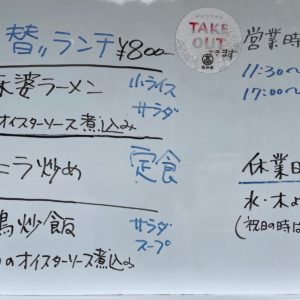 替ッランチ ¥800
婆ラーメン 小ライス サラダ
オイスターソース煮込み
ニラ炒め 定食
炒飯 サラダ スープ
のオイスターソース煮込み
TAKE
OUT
できます
営業時
11:30〜
17:00〜
休業日
水・木よ
(祝日の時は